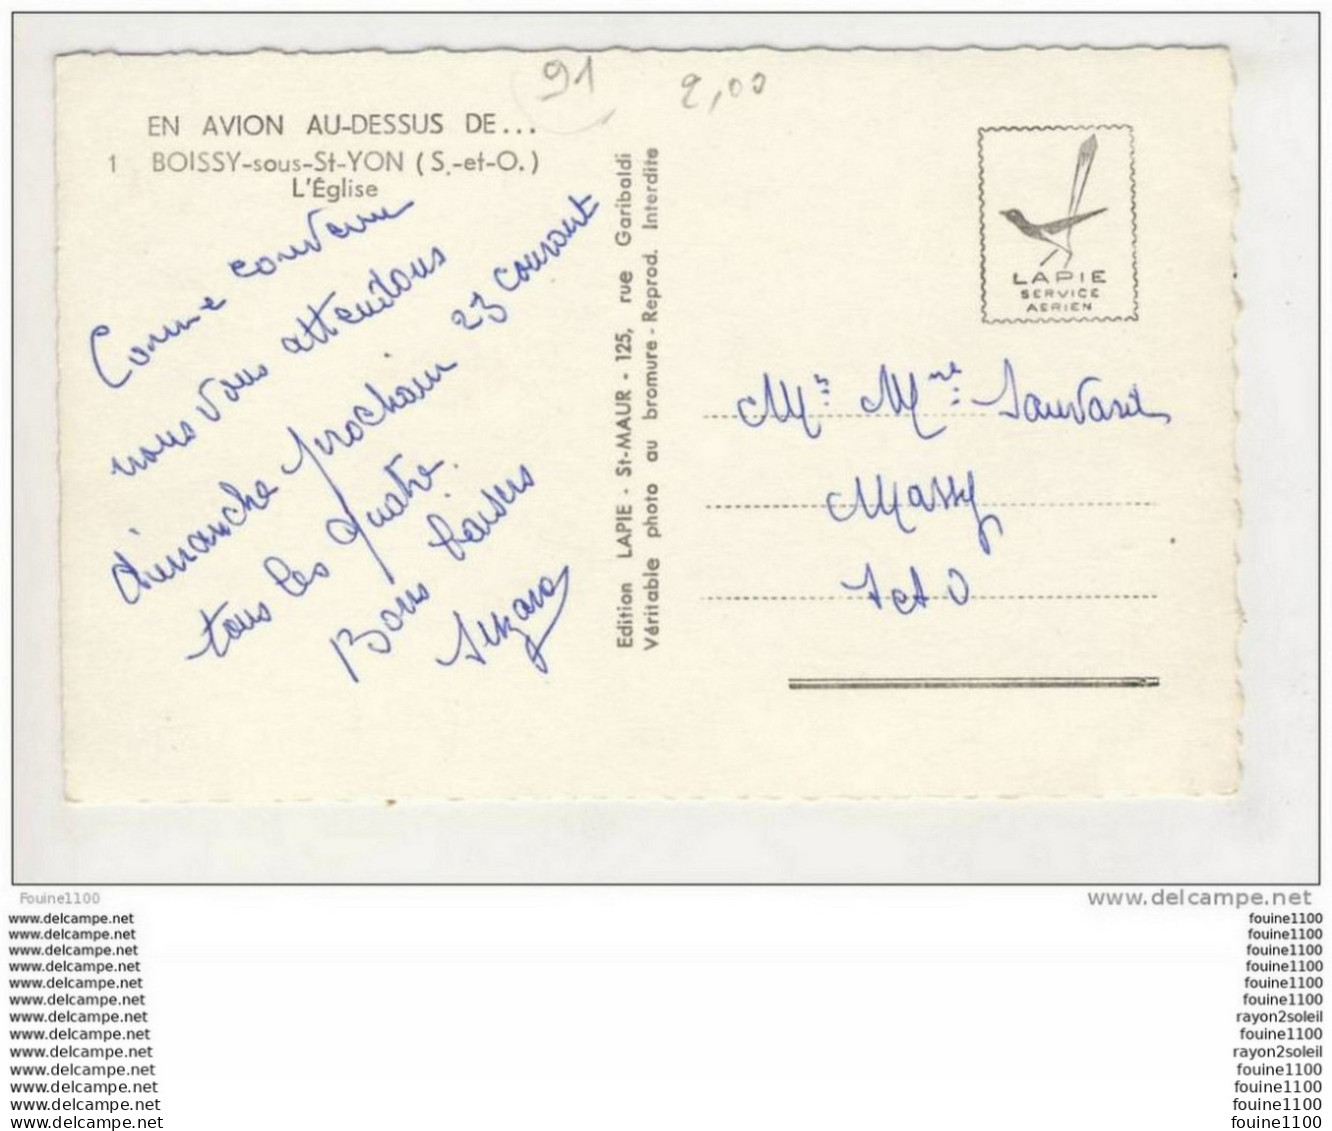 91
2,00
EN AVION AU-DESSUS DE...
1 BOISSY-sous-St-YON (S.-et-O.)
L'Église
Comme convenu
nous vous attendons
dimanche prochain 23 courant
tous les quatre.
Bons baisers
Edition LAPIE - St-MAUR - 125, rue Garibaldi
Véritable photo au bromure - Reprod. Interdite
LAPIE
SERVICE
AERIEN
Mr Mme Sauvard
Massy
S et O
Fouine1100
www.delcampe.net
www.delcampe.net
www.delcampe.net
www.delcampe.net
www.delcampe.net
www.delcampe.net
www.delcampe.net
www.delcampe.net
www.delcampe.net
www.delcampe.net
www.delcampe.net
www.delcampe.net
www.delcampe.net
www.delcampe.net
fouine1100
fouine1100
fouine1100
fouine1100
fouine1100
fouine1100
rayon2soleil
fouine1100
rayon2soleil
fouine1100
fouine1100
fouine1100
fouine1100